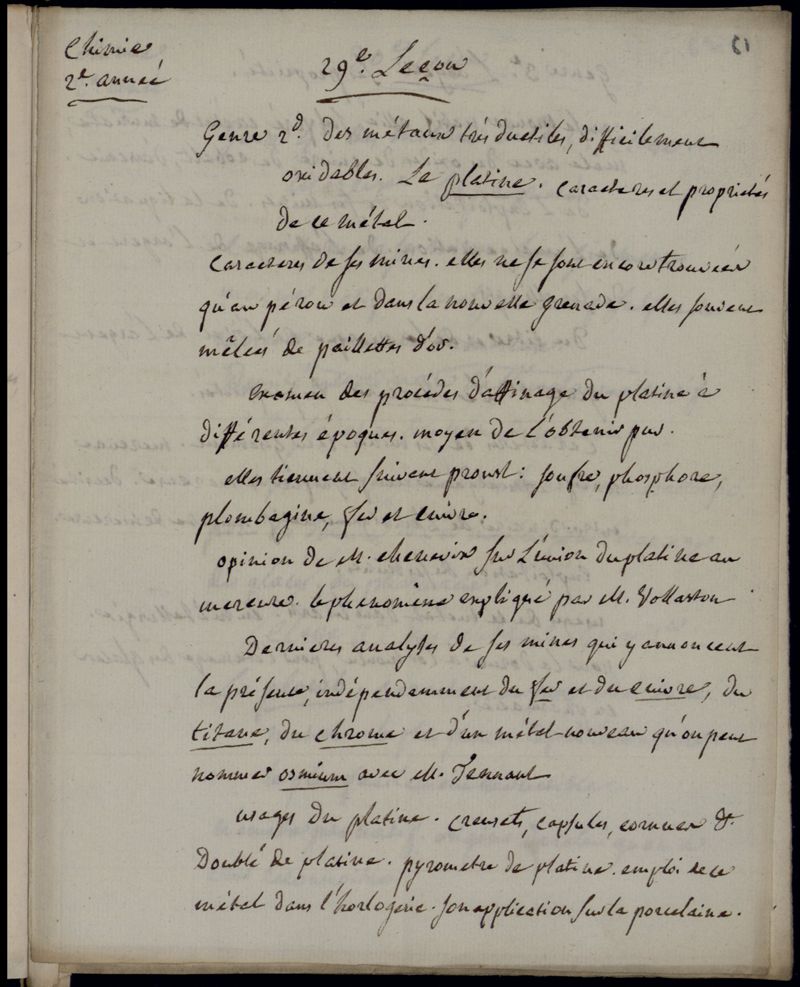 Chimie
2e. année
13
29e. Leçon
Genre 2d. des métaux très ductiles, difficilement
oxidables. Le platine. caracteres et proprietés
de ce métal.
caracteres de ses mines. elles ne se sont encore trouvées
qu'au pérou et dans la nouvelle grenade. elles sont
mêlées de paillettes d'or.
examen des procédés d'affinage du platine à
différentes époques. moyen de l'obtenir pur.
elles tiennent suivant proust: soufre, phosphore,
plombagine, fer et cuivre.
opinion de M. chenevix sur l'union du platine au
mercure. le phenomène expliqué par M. Vollaston
Dernieres analyses de ses mines qui y annoncent
la présence, indépendamment du fer et du cuivre, du
titane, du chrome et d'un métal nouveau qu'on peut
nommer osmium avec M. Tennant
usages du platine. creusets, capsules, cornues &.
Doublé de platine. pyrometre de platine. emploi de ce
métal dans l'horlogerie. son application sur la porcelaine.